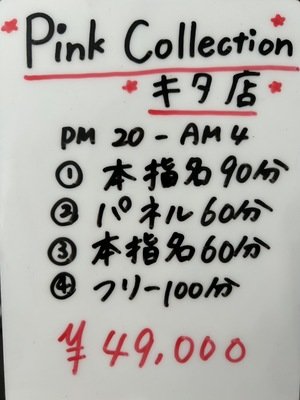 Pink Collection
キタ店
PM 20 - AM 4
① 本指名90分
② パネル60分
③ 本指名60分
④ フリー100分
¥49,000